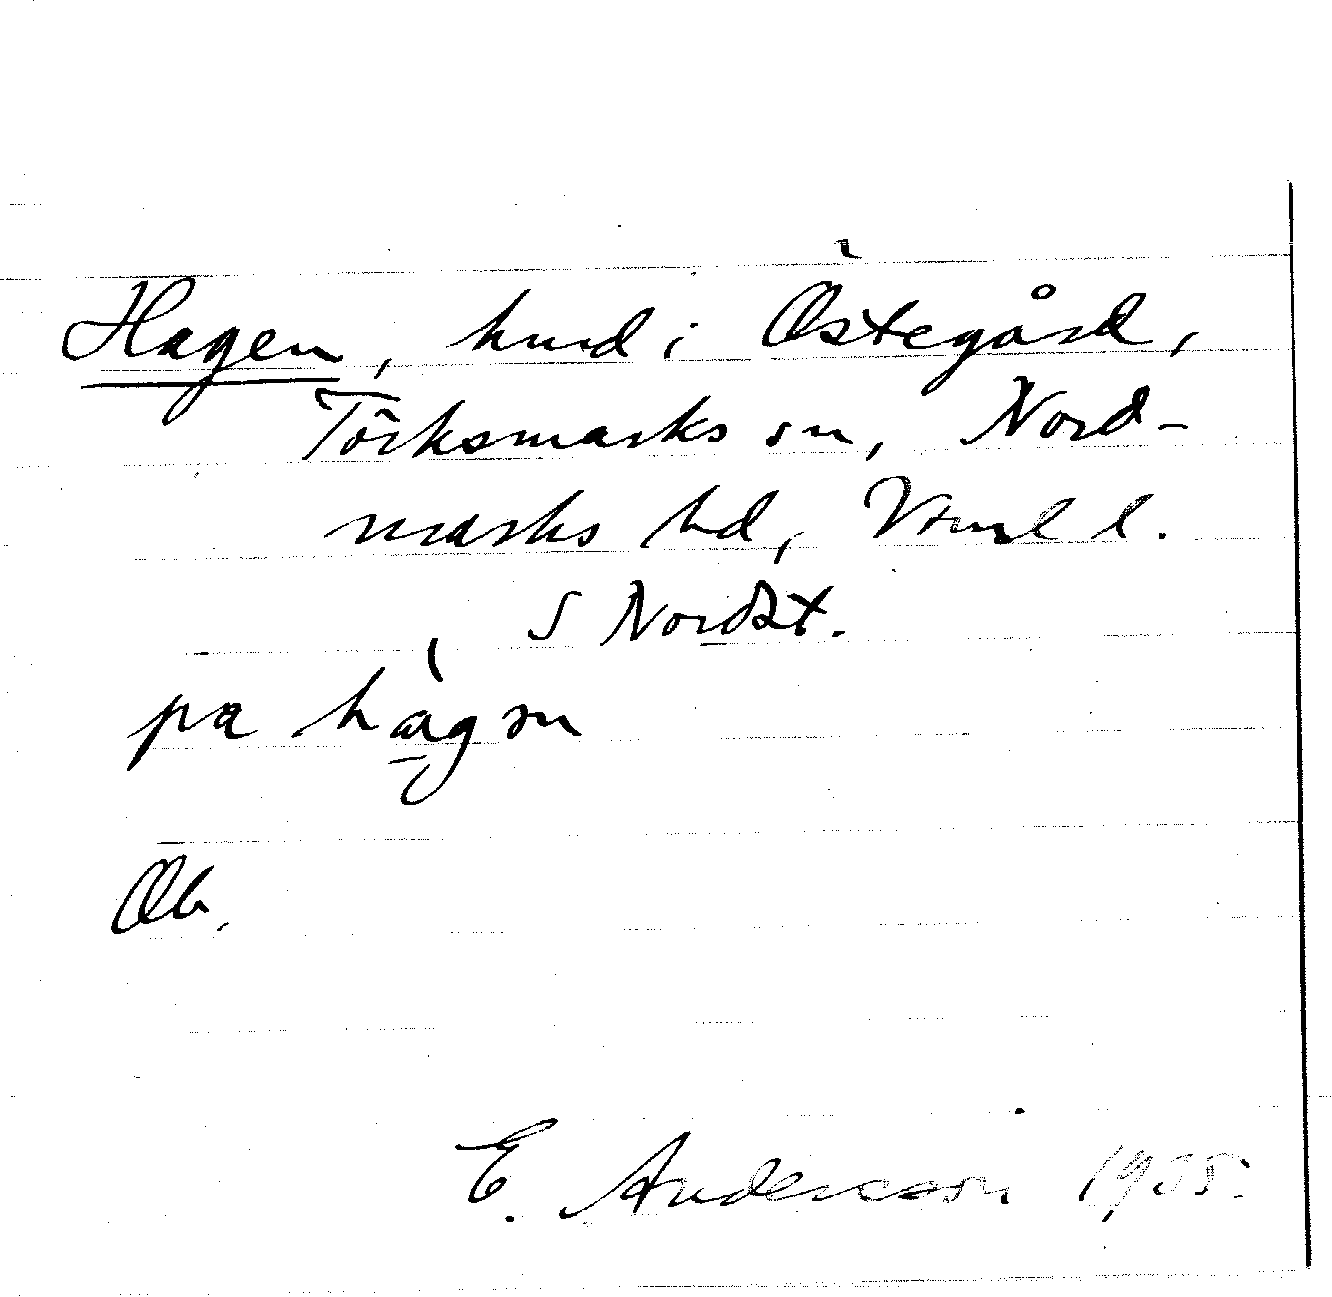 Hagen, hmd i Östegård,
Töcksmarks sn, Nord-
marks hd, Vrml l.
S Nordst.
pa hàgən
Ob.
E. Andersson 1955.